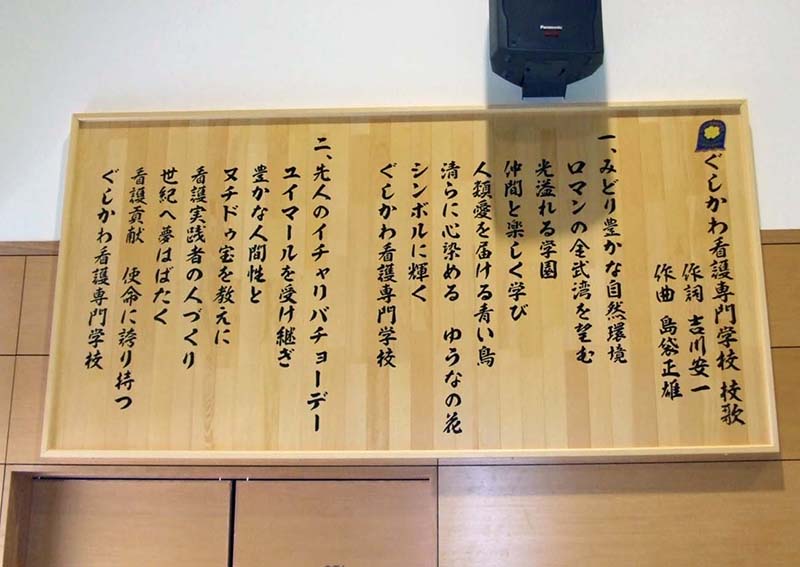 ぐしかわ看護専門学校 校歌
作詞 吉川安一
作曲 島袋正雄
一、みどり豊かな自然環境
ロマンの金武湾を望む
光溢れる学園
仲間と楽しく学び
人類愛を届ける青い鳥
清らに心染める ゆうなの花
シンボルに輝く
ぐしかわ看護専門学校
二、先人のイチャリバチョーデー
ユイマールを受け継ぎ
豊かな人間性と
ヌチドゥ宝を教えに
看護実践者の人づくり
世紀へ夢はばたく
看護貢献 使命に誇り持つ
ぐしかわ看護専門学校
Panasonic